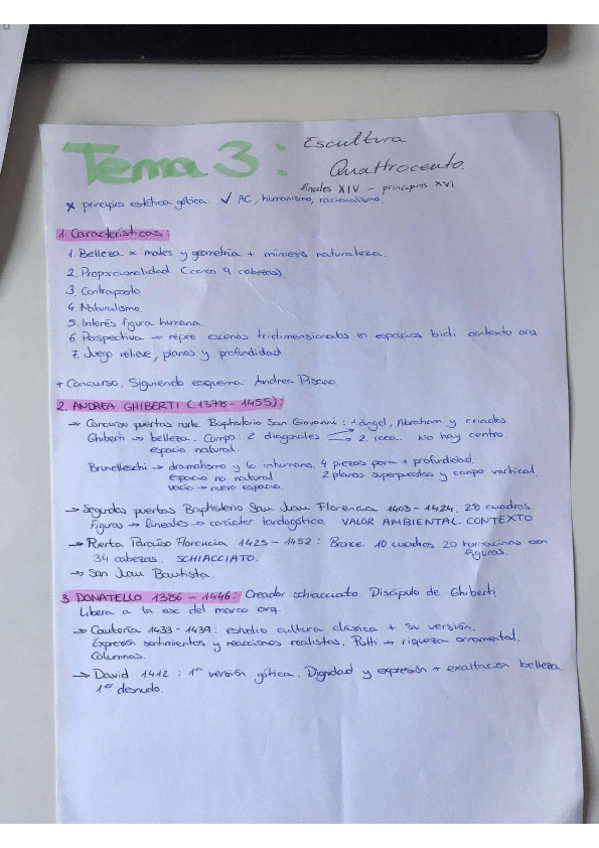 Tema 3: Escultura
Quattrocento.
finales XIV - principios XVI
x principios estética gótica. ✓ AC, humanismo, racionalismo.
1. Características:
1. Belleza x mates y geometría + mímesis naturaleza.
2. Proporcionalidad (canon 9 cabezas).
3. Contraposto
4. Naturalismo.
5. Interés figura humana.
6. Perspectiva → repre. escenas tridimensionales en espacios bidi contexto arq
7. Juego relieve, planos y profundidad.
+ Concurso. Siguiendo esquema Andrea Pisano.
2. ANDREA GHIBERTI (1378-1455):
→ Concurso puertas norte Baptisterio San Giovanni: ángel, Abraham y criados
Ghiberti → belleza. Compo: 2 diagonales → 2. roca. No hay centro.
espacio natural.
Brunelleschi → dramatismo y lo inhumano. 4 piezas para + profundidad.
espacio no natural 2 planos superpuestos y compo vertical
vacío → nuevo espacio.
→ Segundas puertas Baptisterio San Juan Florencia 1403-1424. 28 cuadros
Figuras → lineales → carácter tardogótica. VALOR AMBIENTAL CONTEXTO
→ Puerta Paraíso Florencia 1425-1452: Bronce. 10 cuadros 20 hornacinas con
figuras.
34 cabezas. SCHIACCIATO.
→ San Juan Bautista.
3. DONATELLO 1386-1446: Creador schiacciato. Discípulo de Ghiberti
Libera a la esc del marco arq.
→ Cantoría 1433-1439: estudio cultura clásica + su versión.
Expresión sentimientos y reacciones realistas. Putti → riqueza ornamental.
Columnas.
→ David 1412: 1ª versión gótica. Dignidad y expresión + exaltación belleza
1er desnudo.